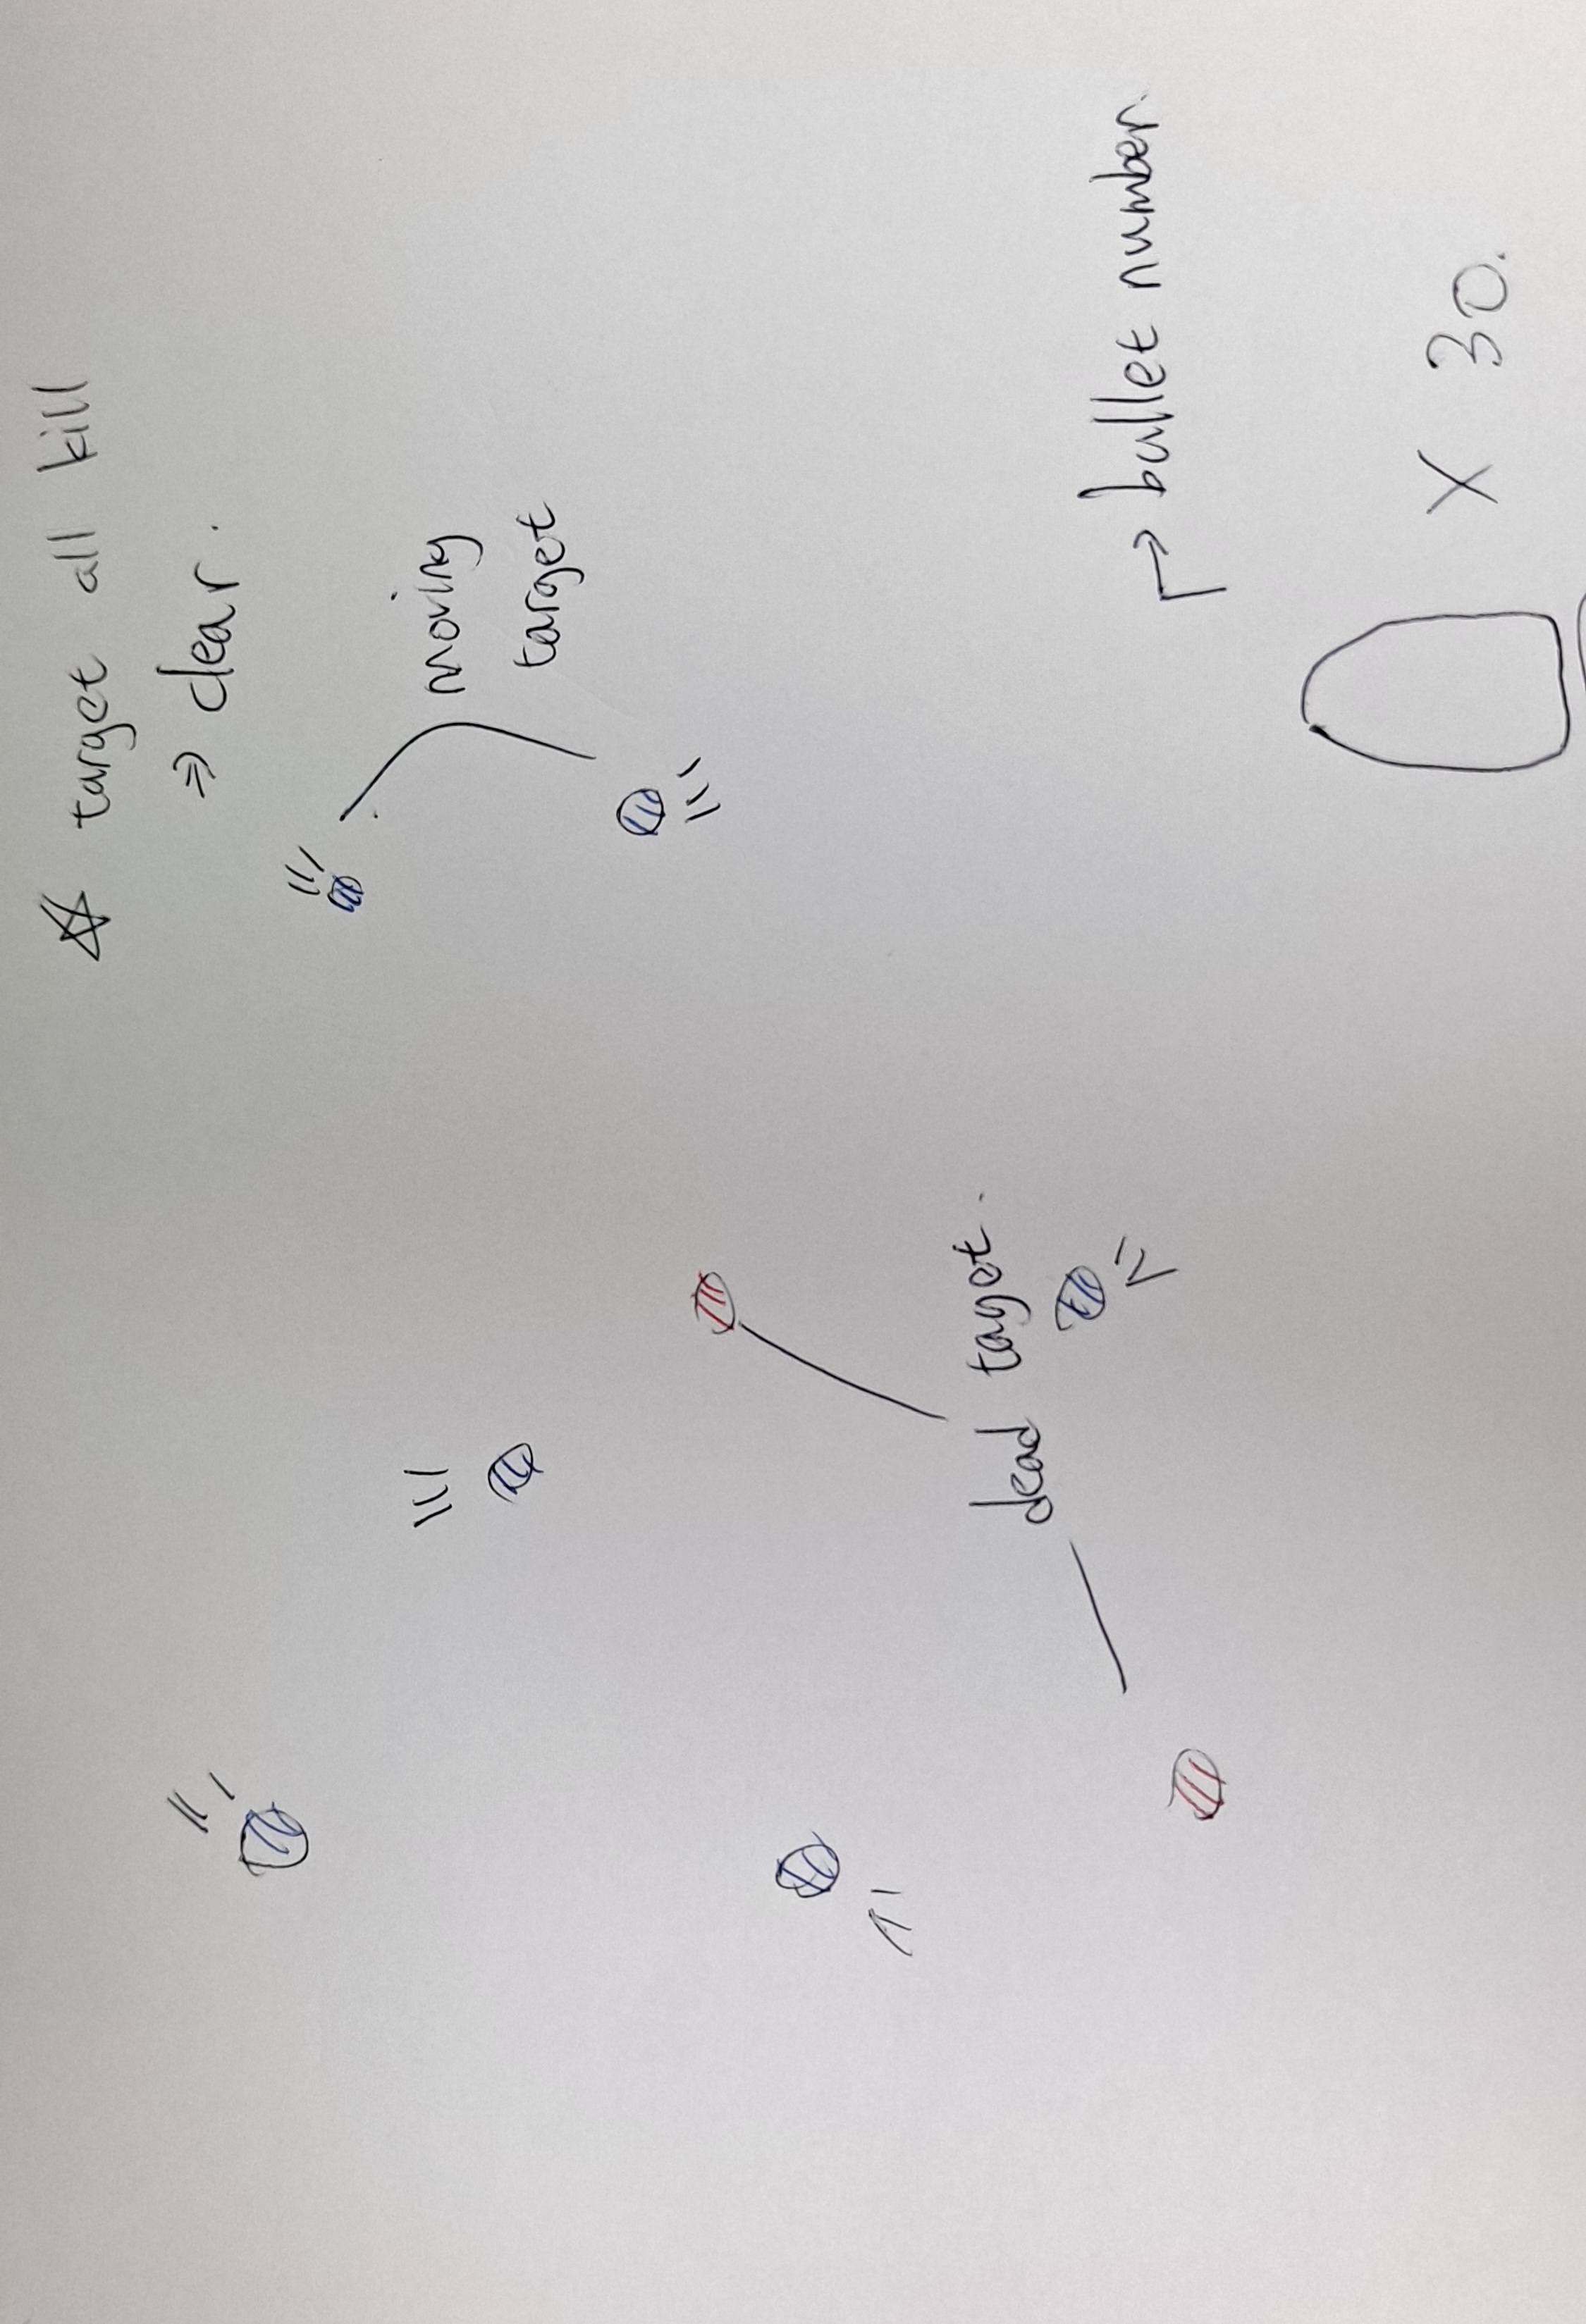 ☆ target all kill
⇒ clear.
moving
target
dead taget.
→ bullet number.
X 30.